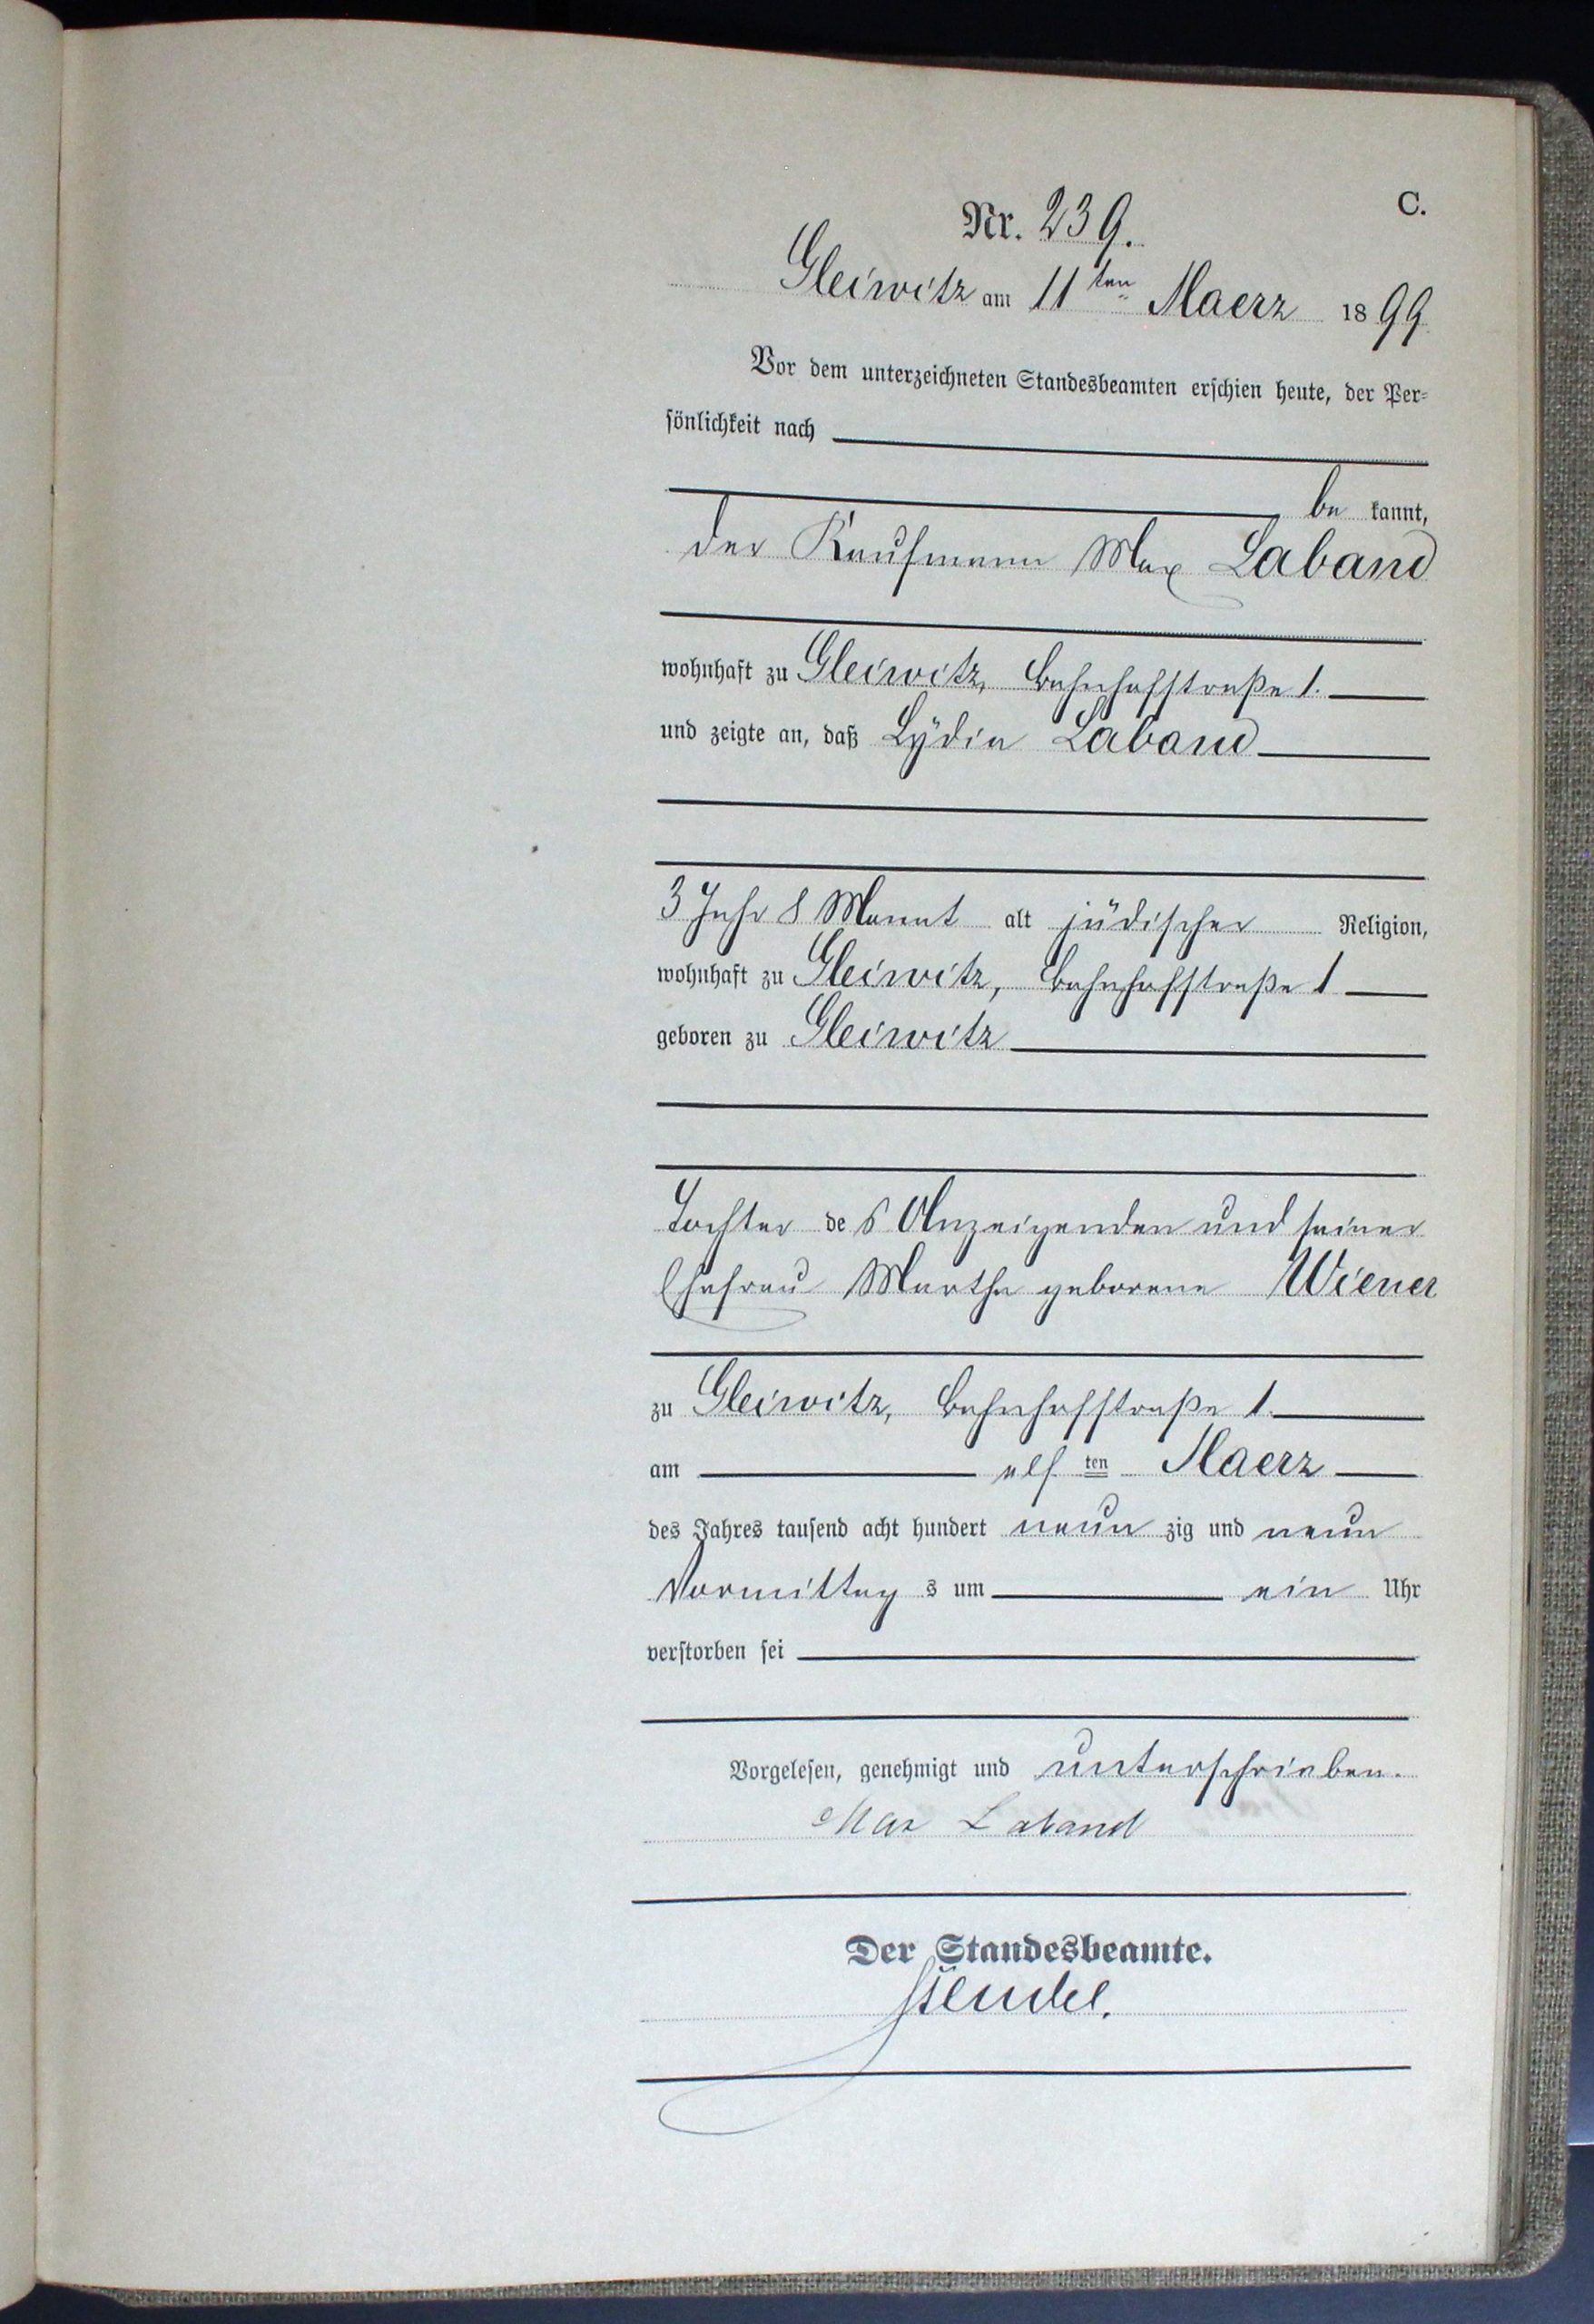 C.
Nr. 239.
Gleiwitz am 11ten Maerz 1899
Vor dem unterzeichneten Standesbeamten erschien heute, der Per-
sönlichkeit nach
be kannt,
der Kaufmann Max Laband
wohnhaft zu Gleiwitz, Bahnhofstraße 1.
und zeigte an, daß Lydia Laband
3 Jahr 8 Monat alt jüdischer Religion,
wohnhaft zu Gleiwitz, Bahnhofstraße 1
geboren zu Gleiwitz
Tochter des Anzeigenden und seiner
Ehefrau Martha geborene Wiener
zu Gleiwitz, Bahnhofstraße 1.
am elf ten Maerz
des Jahres tausend acht hundert neun zig und neun
Vormittag s um ein Uhr
verstorben sei
Vorgelesen, genehmigt und unterschrieben.
Max Laband
Der Standesbeamte.